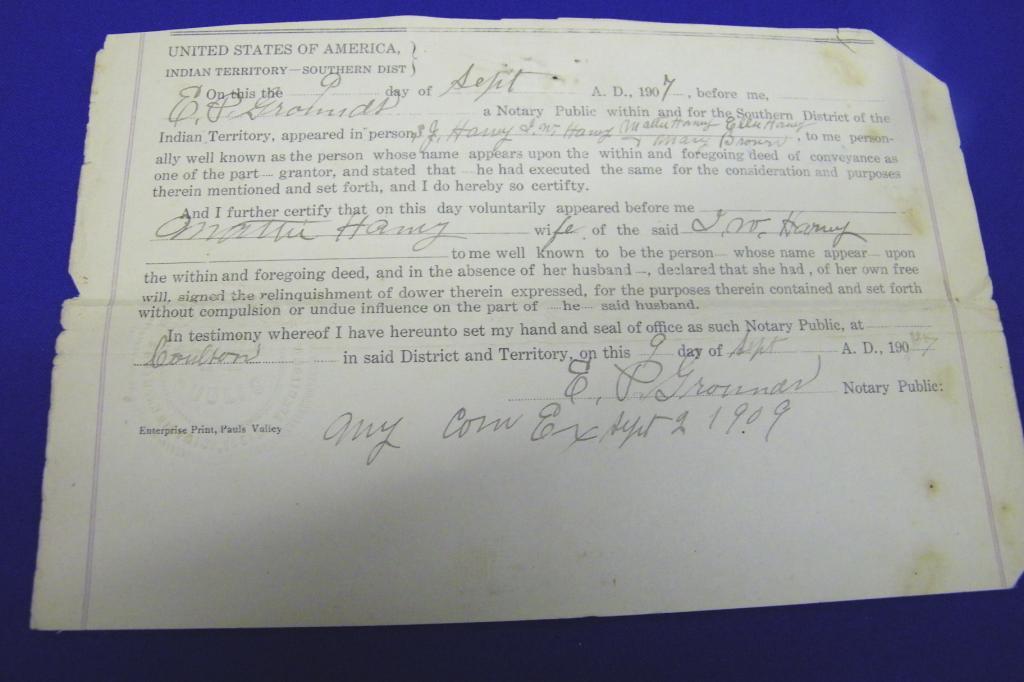 UNITED STATES OF AMERICA, }
INDIAN TERRITORY—SOUTHERN DIST }
On this the 9 day of Sept A. D., 1907, before me,
E. P. Grounds a Notary Public within and for the Southern District of the
Indian Territory, appeared in person, J. W. Haney Mattie Haney Ella Haney
Mary Brown, to me person-
ally well known as the person whose name appears upon the within and foregoing deed of conveyance as
one of the part---- grantor, and stated that ---he had executed the same for the consideration and purposes
therein mentioned and set forth, and I do hereby so certifty.
And I further certify that on this day voluntarily appeared before me
Mattie Haney wife of the said J. W. Haney
to me well known to be the person--- whose name appear--- upon
the within and foregoing deed, and in the absence of her husband---, declared that she had, of her own free
will, signed the relinquishment of dower therein expressed, for the purposes therein contained and set forth
without compulsion or undue influence on the part of ----he--- said husband.
In testimony whereof I have hereunto set my hand and seal of office as such Notary Public, at
Coulton in said District and Territory, on this 9 day of Sept A. D., 1907
E. P. Grounds Notary Public:
Enterprise Print, Pauls Valley
any com Ex Sept 2 1909